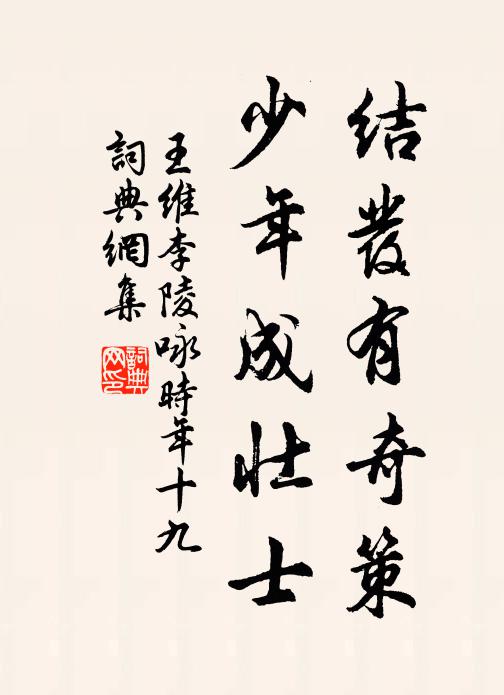 结發有奇策
少年成壮士
王维李陵咏時年十九
詞典網集
詞典
网印